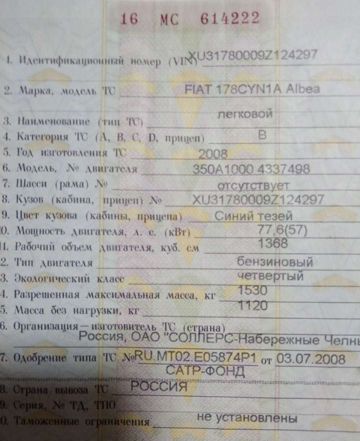 16 МС 614222
1. Идентификационный номер (VIN) XU31780009Z124297
2. Марка, модель ТС FIAT 178CYN1A Albea
3. Наименование (тип ТС) легковой
4. Категория ТС (А, В, С, D, прицеп) В
5. Год изготовления ТС 2008
6. Модель, № двигателя 350A1000 4337498
7. Шасси (рама) № отсутствует
8. Кузов (кабина, прицеп) № XU31780009Z124297
9. Цвет кузова (кабины, прицепа) Синий тезей
0. Мощность двигателя, л. с. (кВт) 77,6(57)
1. Рабочий объем двигателя, куб. см 1368
2. Тип двигателя бензиновый
3. Экологический класс четвертый
4. Разрешенная максимальная масса, кг 1530
5. Масса без нагрузки, кг 1120
6. Организация – изготовитель ТС (страна)
Россия, ОАО "СОЛЛЕРС-Набережные Челны
7. Одобрение типа ТС № RU.MT02.E05874P1 от 03.07.2008
САТР-ФОНД
8. Страна вывоза ТС РОССИЯ
9. Серия, № ТД, ТПО
0. Таможенные ограничения не установлены